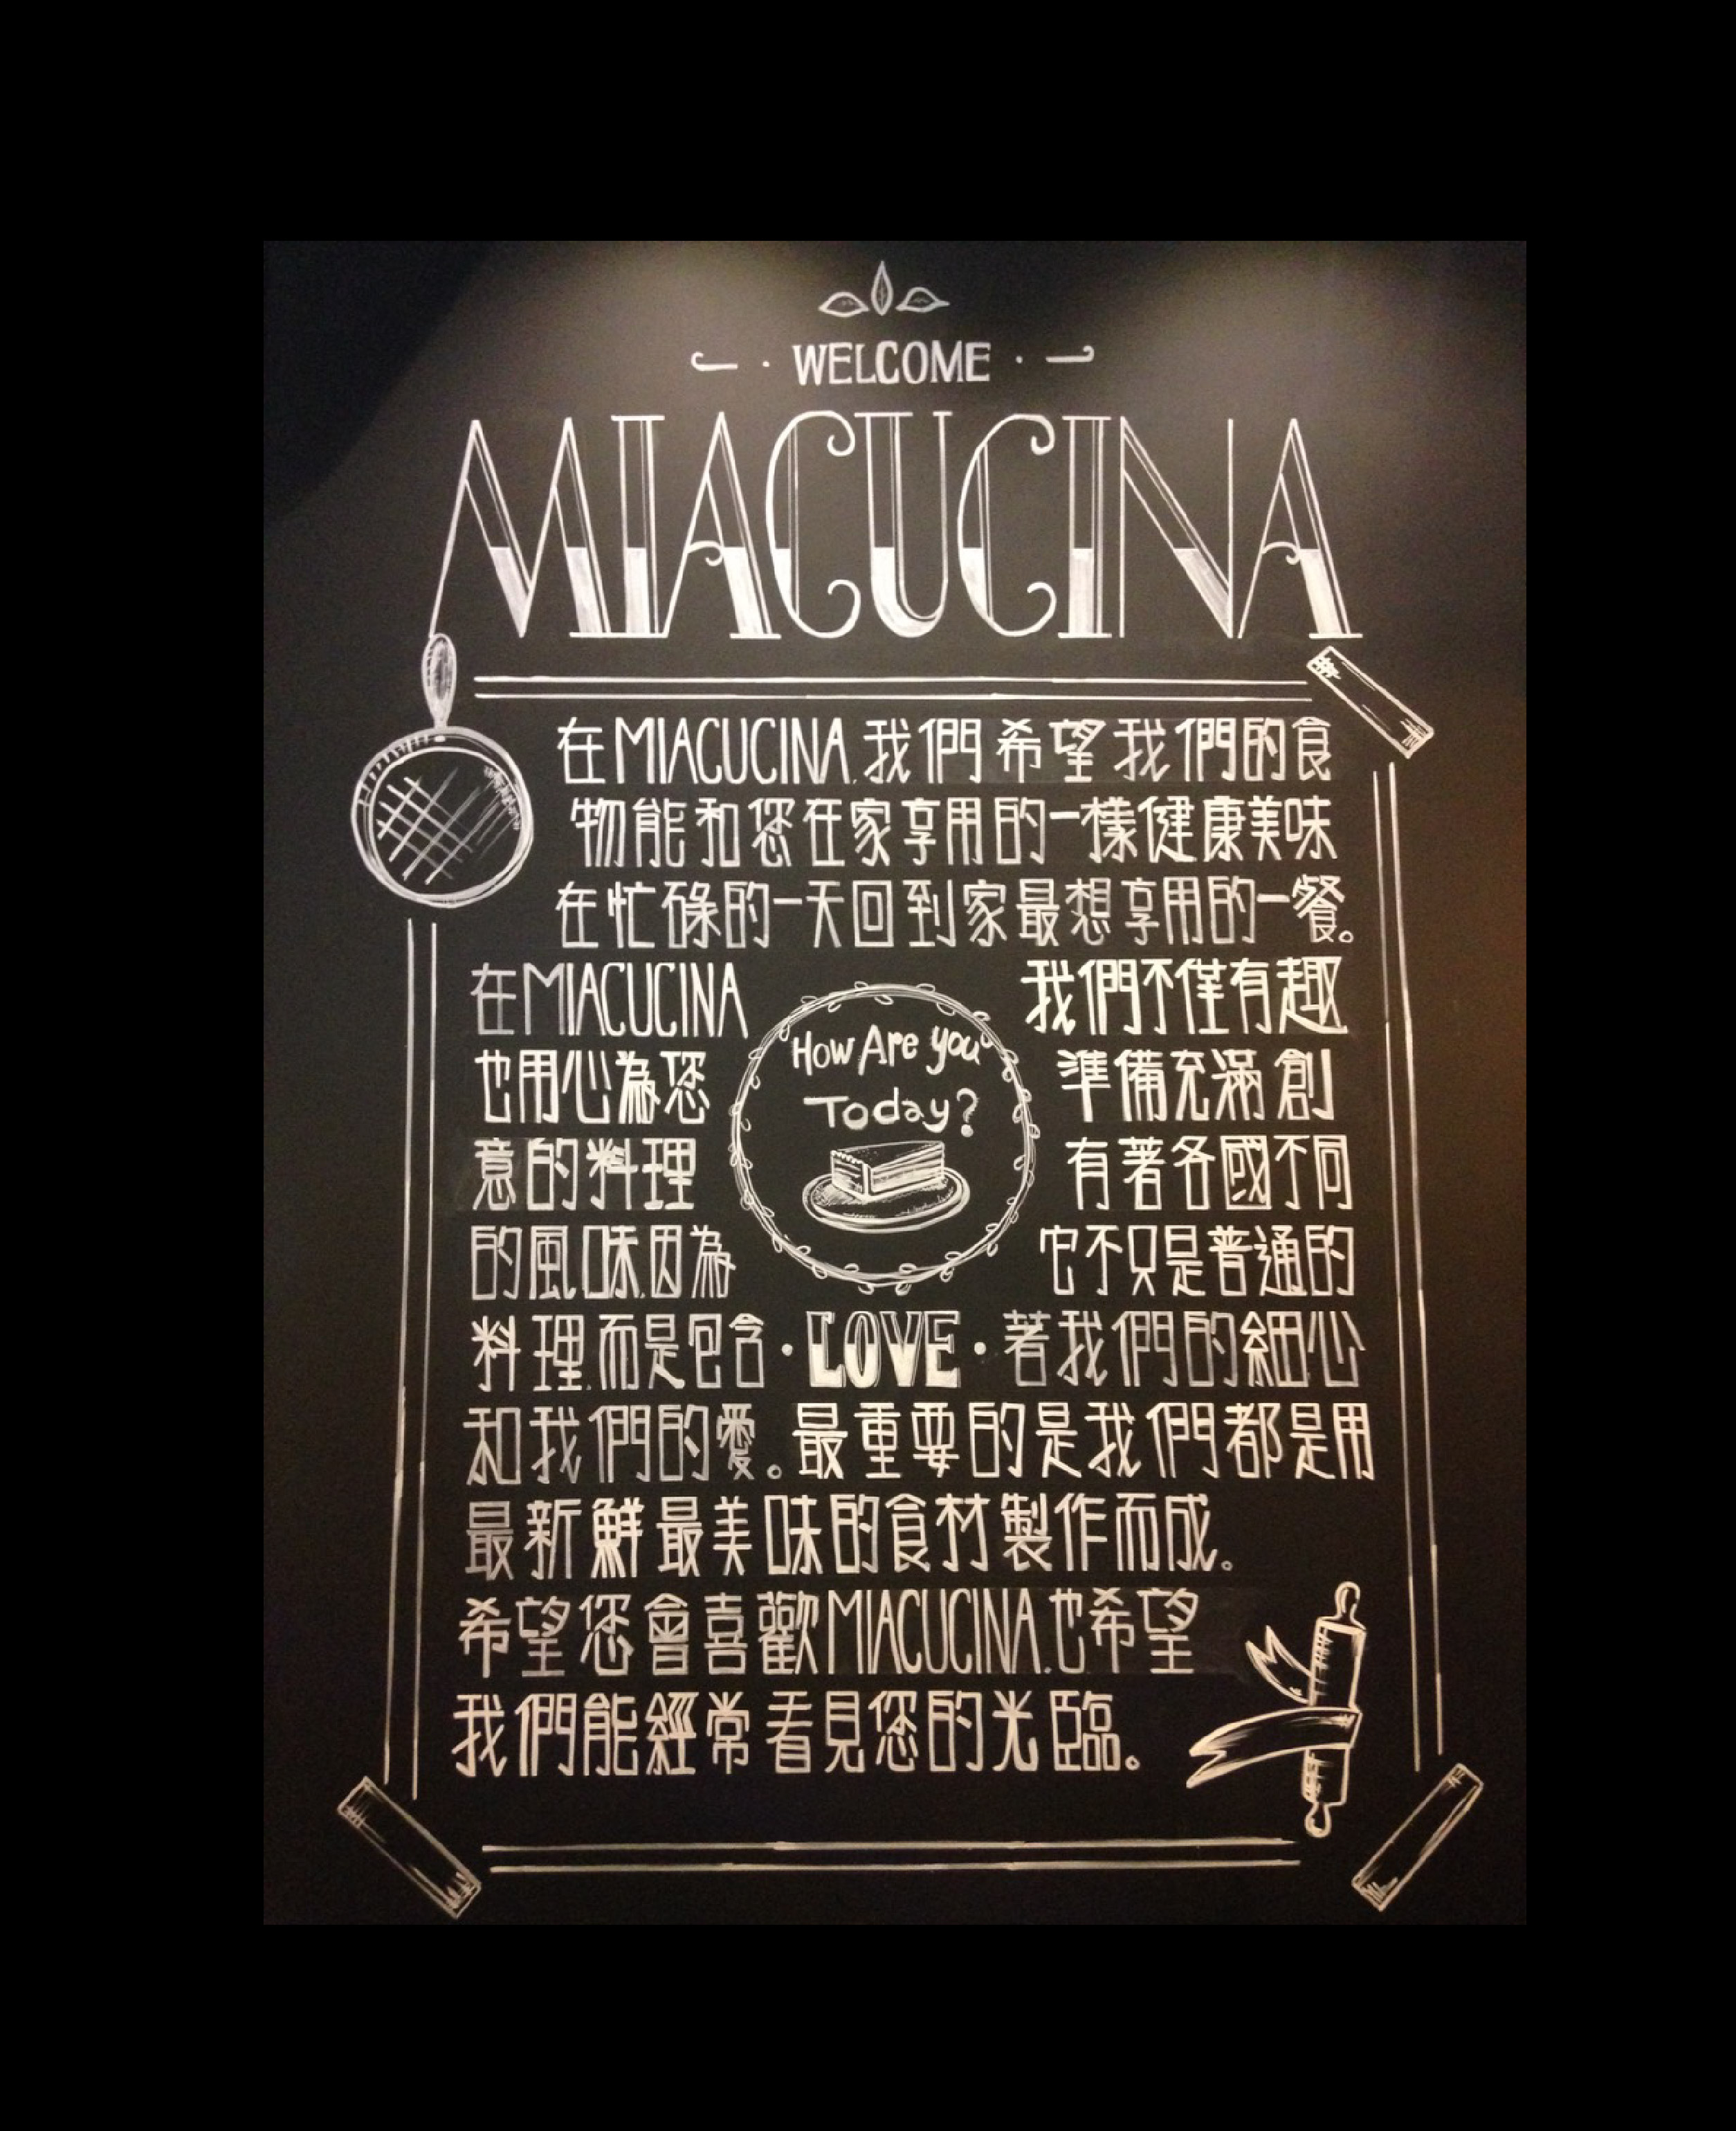 WELCOME
MIACUCINA
在MIACUCINA,我們希望我們的食
物能和您在家享用的一樣健康美味
在忙碌的一天回到家最想享用的一餐。
在MIACUCINA 我們不僅有趣
也用心為您 準備充滿創
意的料理 有著各國不同
的風味,因為 它不只是普通的
料理,而是包含·LOVE·著我們的細心
和我們的愛。最重要的是我們都是用
最新鮮最美味的食材製作而成。
希望您會喜歡MIACUCINA,也希望
我們能經常看見您的光臨。
How Are you
Today?